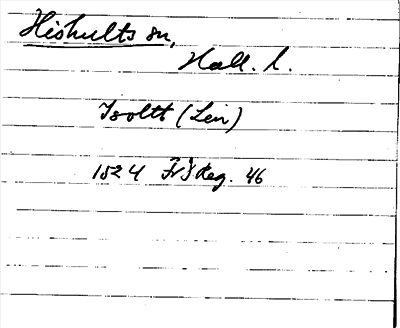 Hishults sn,
Hall. l.
Isoltt (Len)
1524 FrJ Reg. 46